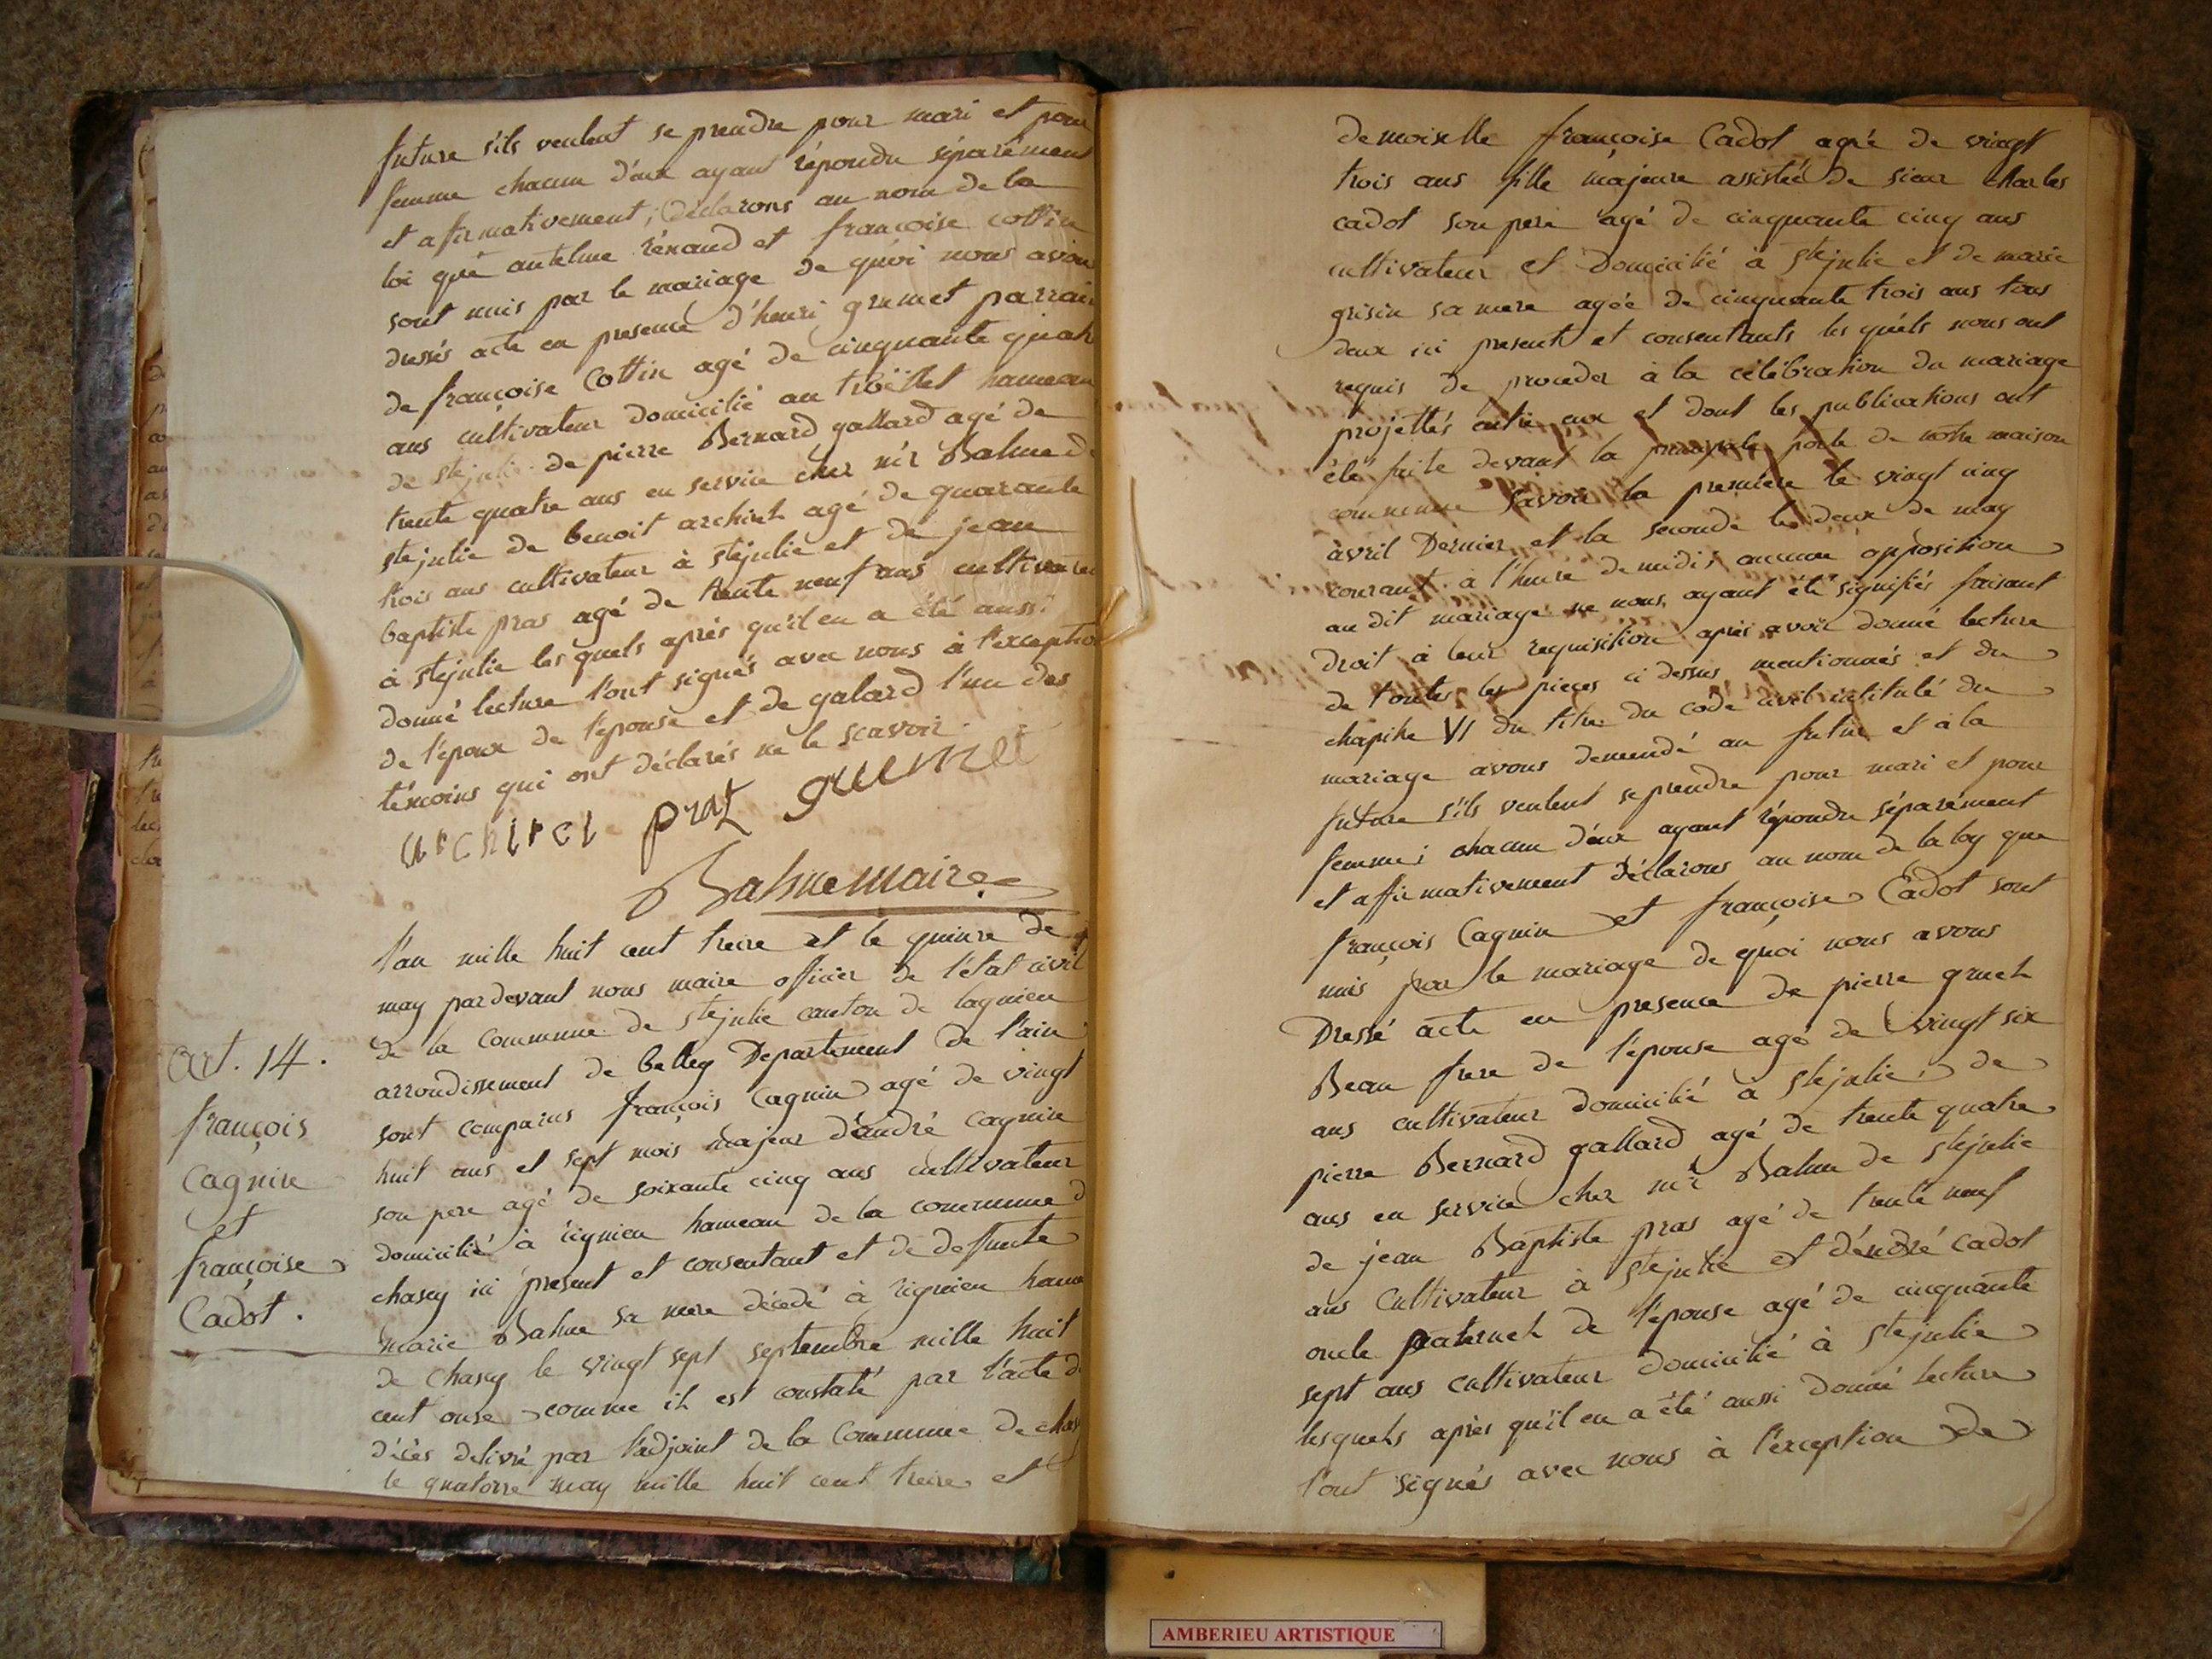 future s'ils veulent se prendre pour mari et pour
femme chacun d'éux ayant répondu séparément
et afirmativement, déclarons au nom de la
loi que antelme rénaud et françoise cottin
sont unis par le mariage de quoi nous avons
dressés acte en presence d'henri grumet parrain
de françoise Cottin agé de cinquante quatr
ans cultivateur domicilié au hameau
de stejulie de pierre Bernard gallard agé de
trente quatre ans en service chez mr Bahue de
stejulie de benoit archirel agé de quarante
trois ans cultivateur à stejulie et de jean
baptiste pras agé de trente neuf ans cultivateur
à stejulie les quels après qu'il en a été aussi
donné lecture l'ont signés avec nous à l'exception
de l'époux de l'épouse et de galard l'un des
témoins qui ont déclarés ne le scavoir.
archirel praz grumet
Bahue maire
l'an mille huit cent treize et le quinze de
may pardevant nous maire officier de l'état civil
de la commune de stejulie canton de lagnieu
arrondissement de belley Departement de l'ain
Art. 14.
sont comparus françois Cagnin agé de vingt
françois
huit ans et sept mois majeur d'andré cagnin
Cagnin
son pere agé de soixante cinq ans cultivateur
et
domicilié à rignieu hameau de la commune d
françoise
chasey ici présent et consentant et de defunte
Cadot.
marie Bahue sa mere décedé à rignieu hame
de chasey le vingt sept septembre mille huit
cent onze comme il est constaté par l'acte d
décès delivré par l'adjoint de la Commune de chas
le quatorze may mille huit cent treize et
demoiselle françoise Cadot agée de vingt
trois ans fille majeure assistée de sieur charles
cadot son pere agé de cinquante cinq ans
cultivateur et domicilié à stejulie et de marie
grisin sa mere agée de cinquante trois ans tous
deux ici present et consentants les quéls nous ont
requis de proceder à la célébration du mariage
projettés entre eux et dont les publications ont
été faite devant la principale porte de notre maison
commune savoir la première le vingt cinq
avril Dernier et la seconde le deux de may
courant à l'heure de midi; aucune opposition
au dit mariage ne nous ayant été signifiés faisant
droit à leur requisition après avoir donné lecture
de toutes les pieces ci dessus mentionnés et du
chapitre VI du titre du code civil intitulé du
mariage avons demendé au futur et à la
future s'ils veulent se prendre pour mari et pour
femme; chacun d'éux ayant répondu séparément
et affirmativement déclarons au nom de la loy que
françois Cagnin et françoise Cadot sont
unis par le mariage de quoi nous avons
Dressé acte en presence de pierre gruel
Beau frere de l'épouse agé de vingt six
ans cultivateur domicilié à stejulie, de
pierre Bernard gallard agé de trente quatre
ans en service chez mr Bahue de stejulie
de jean Baptiste pras agé de trente neuf
ans Cultivateur à stejulie et d'éndré cadot
oncle paternel de l'épouse agé de cinquante
sept ans cultivateur domicilié à stejulie
lesquels après qu'il en a été aussi donné lecture
l'ont signés avec nous à l'exception de
AMBERIEU ARTISTIQUE